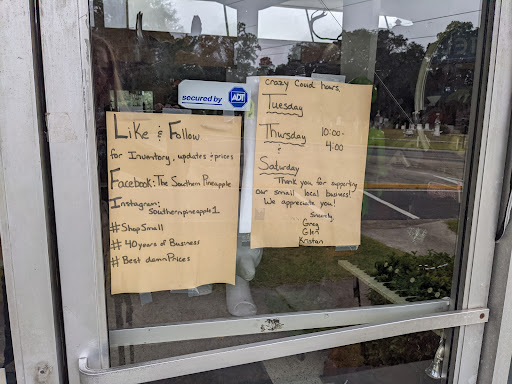 secured by ADT
Like & Follow
for Inventory, updates & prices
Facebook: The Southern Pineapple
Instagram:
Southernpineapple1
#ShopSmall
#40years of Business
#Best damnPrices
Crazy Covid hours,
Tuesday
Thursday 10:00-
& 4:00
Saturday
Thank you for supporting
our small local busines!
We appreciate you!
Sincerely,
Greg
Glen
Kristan